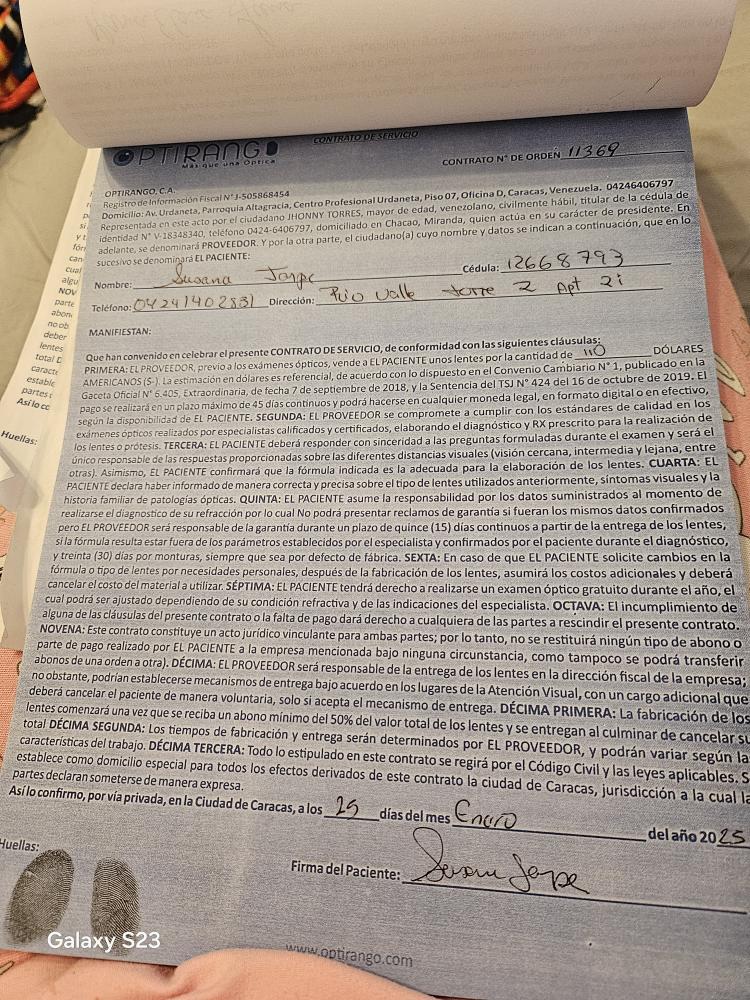 OPTIRANGO
Más que una Óptica
CONTRATO DE SERVICIO
CONTRATO N° DE ORDEN 11369
OPTIRANGO, C.A.
Registro de Información Fiscal N° J-505868454
Domicilio: Av. Urdaneta, Parroquia Altagracia, Centro Profesional Urdaneta, Piso 07, Oficina D, Caracas, Venezuela. 04246406797
Representada en este acto por el ciudadano JHONNY TORRES, mayor de edad, venezolano, civilmente hábil, titular de la cédula de
identidad N° V-18348340, teléfono 0424-6406797, domiciliado en Chacao, Miranda, quien actúa en su carácter de presidente. En
adelante, se denominará PROVEEDOR. Y por la otra parte, el ciudadano(a) cuyo nombre y datos se indican a continuación, que en lo
sucesivo se denominará EL PACIENTE:
Nombre: Susana Jaspe Cédula: 12668793
Teléfono: 04241402831 Dirección: Valle torre 2 Apt 2i
MANIFIESTAN:
Que han convenido en celebrar el presente CONTRATO DE SERVICIO, de conformidad con las siguientes cláusulas:
PRIMERA: EL PROVEEDOR, previo a los exámenes ópticos, vende a EL PACIENTE unos lentes por la cantidad de 110 DÓLARES
AMERICANOS ($-). La estimación en dólares es referencial, de acuerdo con lo dispuesto en el Convenio Cambiario N° 1, publicado en la
Gaceta Oficial N° 6.405, Extraordinaria, de fecha 7 de septiembre de 2018, y la Sentencia del TSJ N° 424 del 16 de octubre de 2019. El
pago se realizará en un plazo máximo de 45 días continuos y podrá hacerse en cualquier moneda legal, en formato digital o en efectivo,
según la disponibilidad de EL PACIENTE. SEGUNDA: EL PROVEEDOR se compromete a cumplir con los estándares de calidad en los
exámenes ópticos realizados por especialistas calificados y certificados, elaborando el diagnóstico y RX prescrito para la realización de
los lentes o prótesis. TERCERA: EL PACIENTE deberá responder con sinceridad a las preguntas formuladas durante el examen y será el
único responsable de las respuestas proporcionadas sobre las diferentes distancias visuales (visión cercana, intermedia y lejana, entre
otras). Asimismo, EL PACIENTE confirmará que la fórmula indicada es la adecuada para la elaboración de los lentes. CUARTA: EL
PACIENTE declara haber informado de manera correcta y precisa sobre el tipo de lentes utilizados anteriormente, síntomas visuales y la
historia familiar de patologías ópticas. QUINTA: EL PACIENTE asume la responsabilidad por los datos suministrados al momento de
realizarse el diagnostico de su refracción por lo cual No podrá presentar reclamos de garantía si fueran los mismos datos confirmados
pero EL PROVEEDOR será responsable de la garantía durante un plazo de quince (15) días continuos a partir de la entrega de los lentes,
si la fórmula resulta estar fuera de los parámetros establecidos por el especialista y confirmados por el paciente durante el diagnóstico,
y treinta (30) días por monturas, siempre que sea por defecto de fábrica. SEXTA: En caso de que EL PACIENTE solicite cambios en la
fórmula o tipo de lentes por necesidades personales, después de la fabricación de los lentes, asumirá los costos adicionales y deberá
cancelar el costo del material a utilizar. SÉPTIMA: EL PACIENTE tendrá derecho a realizarse un examen óptico gratuito durante el año, el
cual podrá ser ajustado dependiendo de su condición refractiva y de las indicaciones del especialista. OCTAVA: El incumplimiento de
alguna de las cláusulas del presente contrato o la falta de pago dará derecho a cualquiera de las partes a rescindir el presente contrato.
NOVENA: Este contrato constituye un acto jurídico vinculante para ambas partes; por lo tanto, no se restituirá ningún tipo de abono o
parte de pago realizado por EL PACIENTE a la empresa mencionada bajo ninguna circunstancia, como tampoco se podrá transferir
abonos de una orden a otra). DÉCIMA: EL PROVEEDOR será responsable de la entrega de los lentes en la dirección fiscal de la empresa;
no obstante, podrían establecerse mecanismos de entrega bajo acuerdo en los lugares de la Atención Visual, con un cargo adicional que
deberá cancelar el paciente de manera voluntaria, solo si acepta el mecanismo de entrega. DÉCIMA PRIMERA: La fabricación de los
lentes comenzará una vez que se reciba un abono mínimo del 50% del valor total de los lentes y se entregan al culminar de cancelar su
total DÉCIMA SEGUNDA: Los tiempos de fabricación y entrega serán determinados por EL PROVEEDOR, y podrán variar según la
características del trabajo. DÉCIMA TERCERA: Todo lo estipulado en este contrato se regirá por el Código Civil y las leyes aplicables. S
establece como domicilio especial para todos los efectos derivados de este contrato la ciudad de Caracas, jurisdicción a la cual la
partes declaran someterse de manera expresa.
Así lo confirmo, por vía privada, en la Ciudad de Caracas, a los 25 días del mes Enero del año 2025
Huellas:
Firma del Paciente: Susana Jaspe
www.optirango.com
Huellas:
Galaxy S23